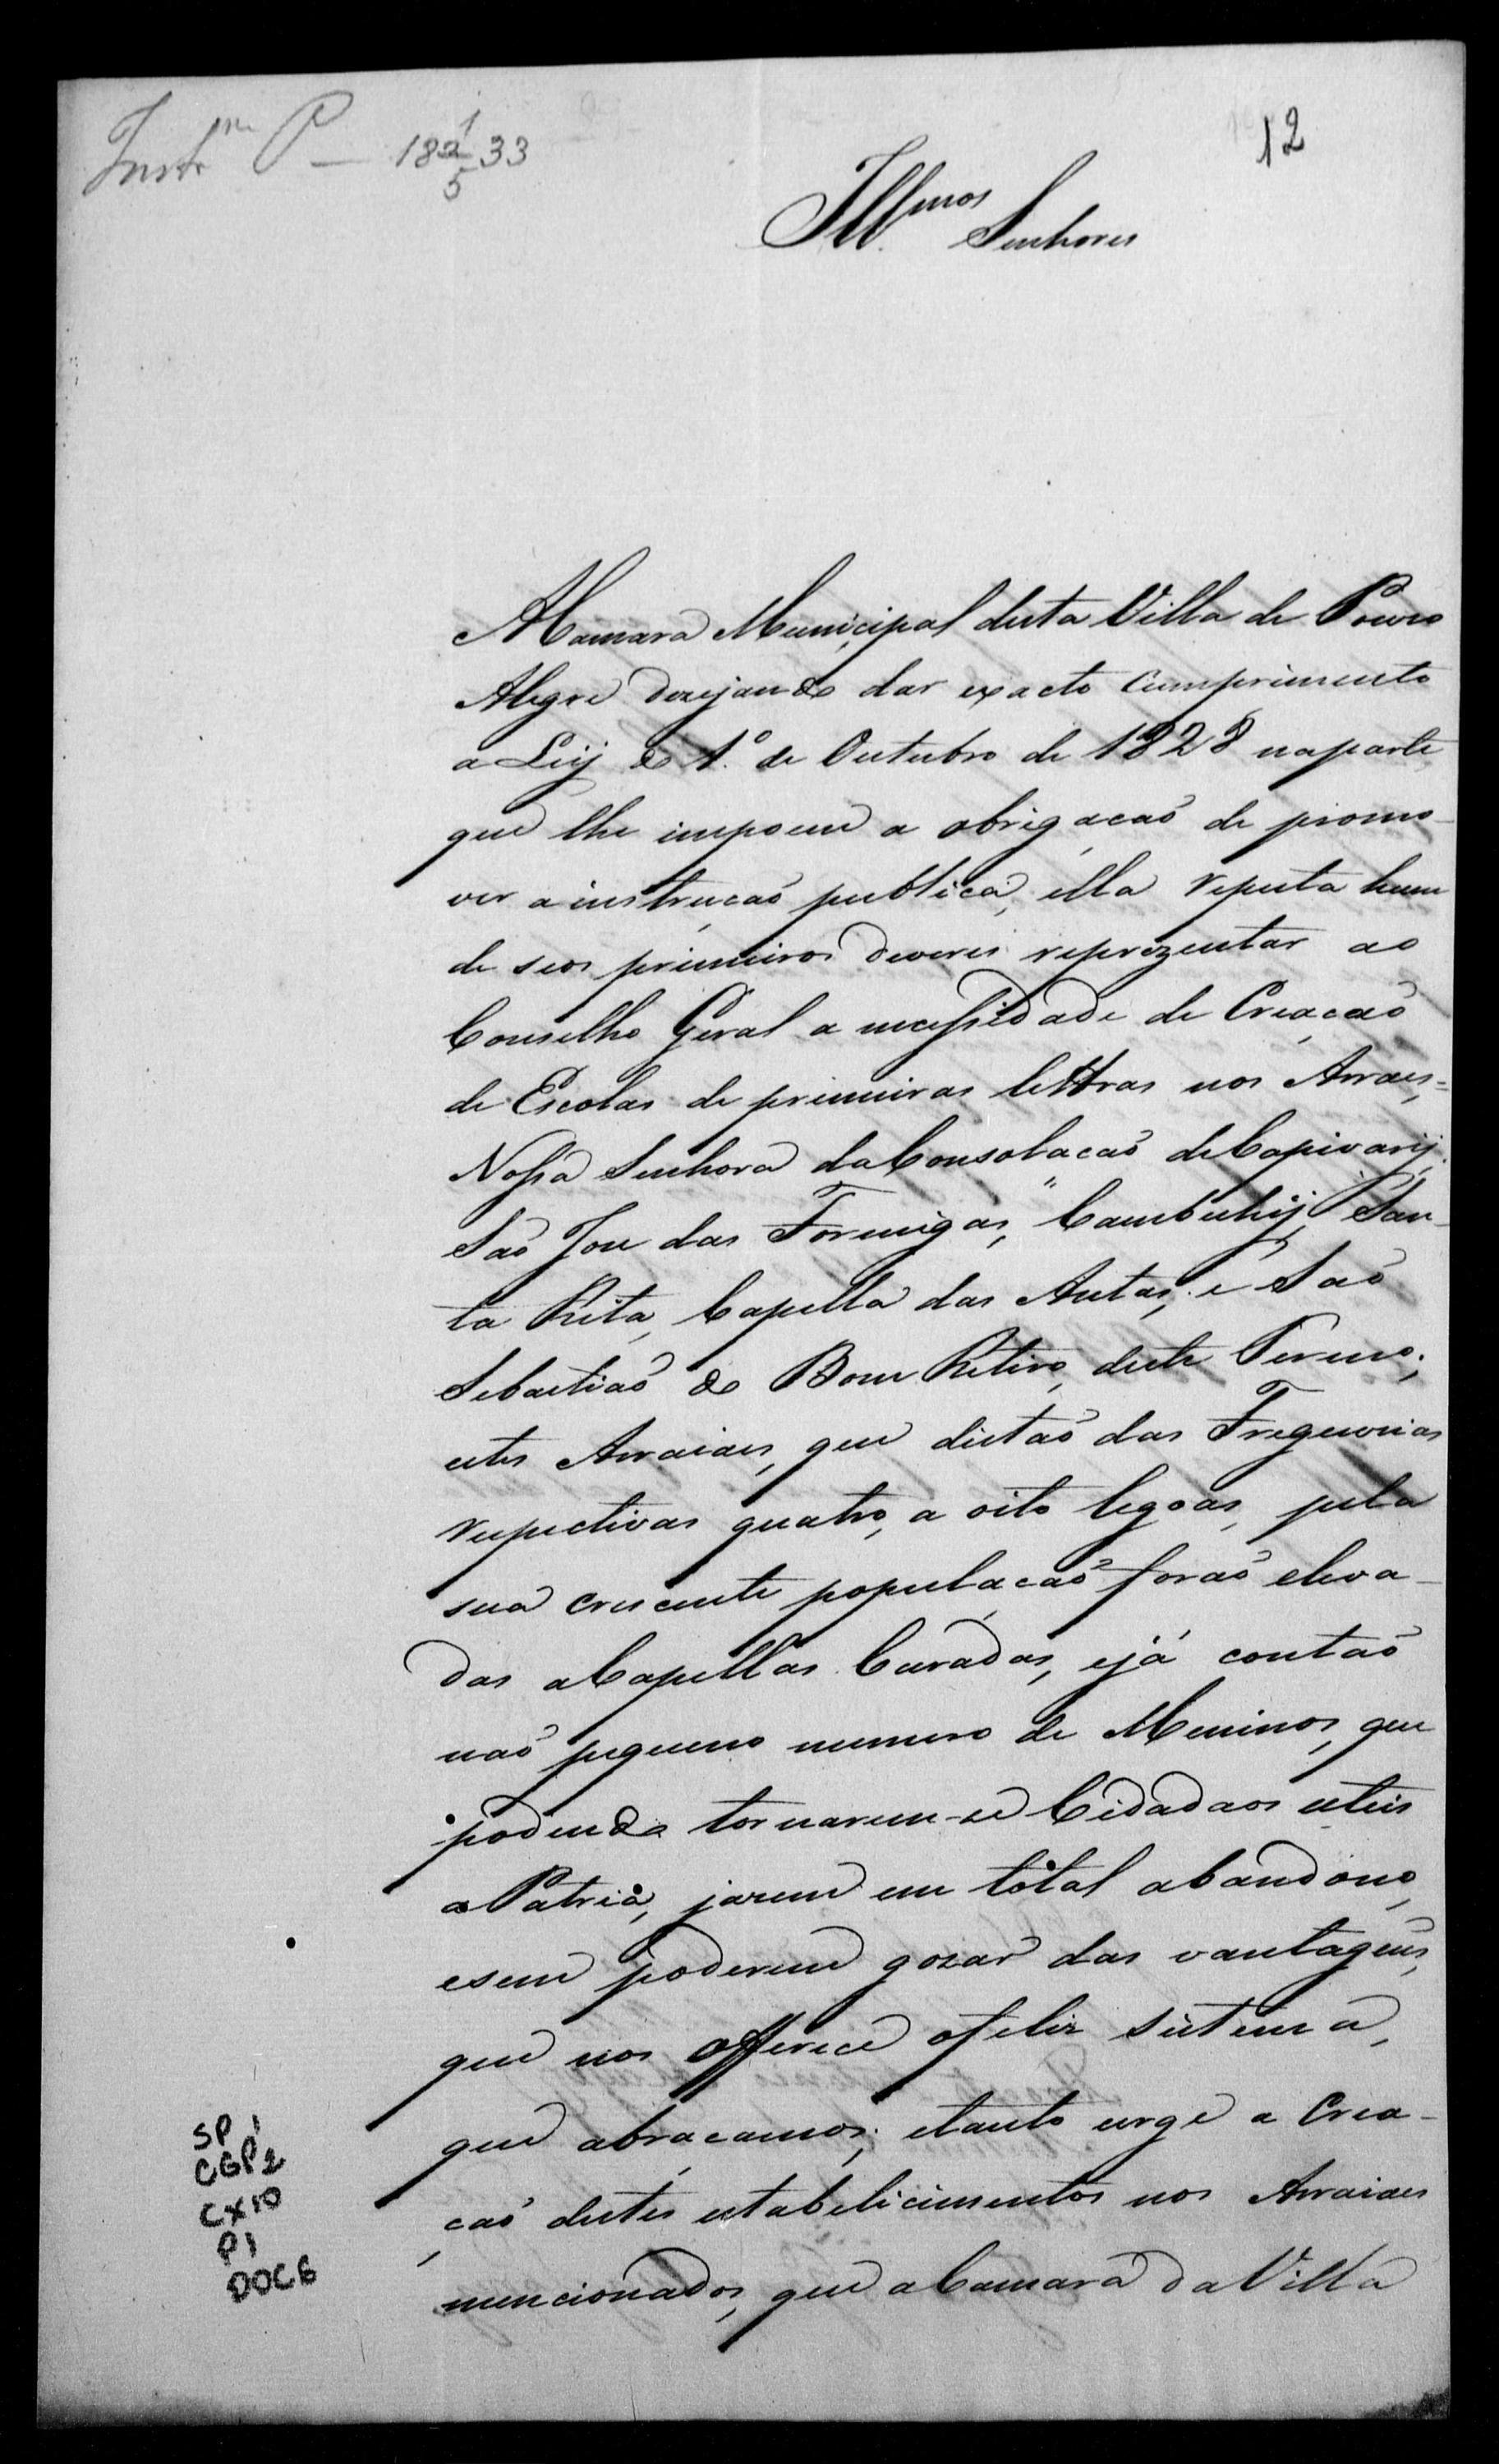 Instr.m P — 18 1/5 33
12
Ill.mos Senhores
A Camara Municipal desta Villa de Pouso
Alegre dezejando dar exacto cumprimento
a Leij do 1.º de Outubro de 1828 naparte,
que lhe impoem a obrigação de promo-
ver a instrução publica, ella reputa hum
de seos primeiros deveres reprezentar ao
Conselho Geral a necessidade de Creação
de Escolas de primeiras lettras nos Arraes,=
Nossa Senhora daConsolação deCapivarij,
São Joze das Formigas, Cambuhij, San-
ta Rita, Capella das Antas, e São
Sebastião do Bom Retiro, deste Termo;
estes Arraiaes, que distão das Freguezias
respectivas quatro, a oito legoas, pela
sua crescente população forão eleva-
das aCapellas Curadas, ejá contão
não pequeno numero de Meninos, que
podendo tornarem-se Cidadaos uteis
aPatria, jazem em total abandono,
esem poderem gozar das vantagens,
que nos offerece ofeliz sistema,
que abraçamos; etanto urge a Crea-
ção destes estabelicimentos nos Arraiaes
mencionados, que aCamara daVilla
SP 1
CGP2
CX10
P1
DOC6